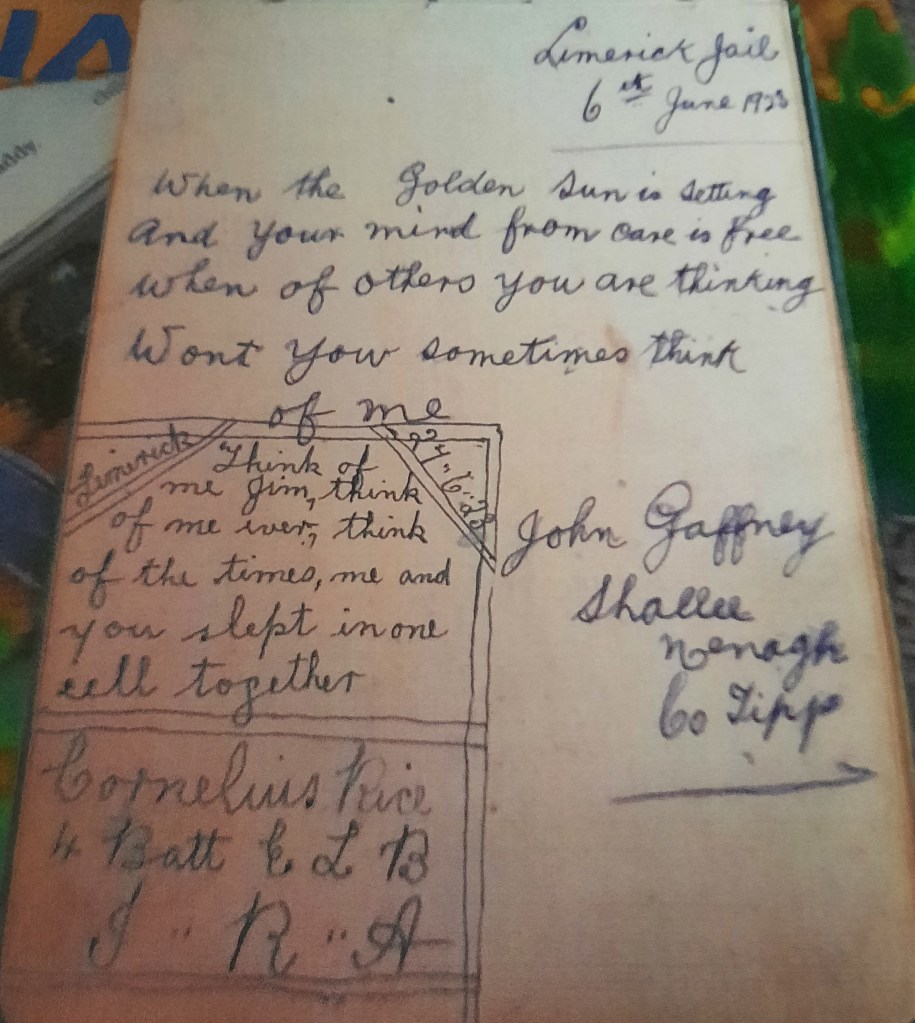 Limerick Jail
6th June 1923
When the Golden Sun is Setting
And Your mind from care is free
When of others you are thinking
Wont You sometimes think
of me
Limerick
Think of
me Jim, think
of me ever, think
of the times, me and
you slept in one
cell together
John Gaffney
Shallee
Nenagh
Co Tipp
Cornelius Rice
4 Batt E L B
I " R " A